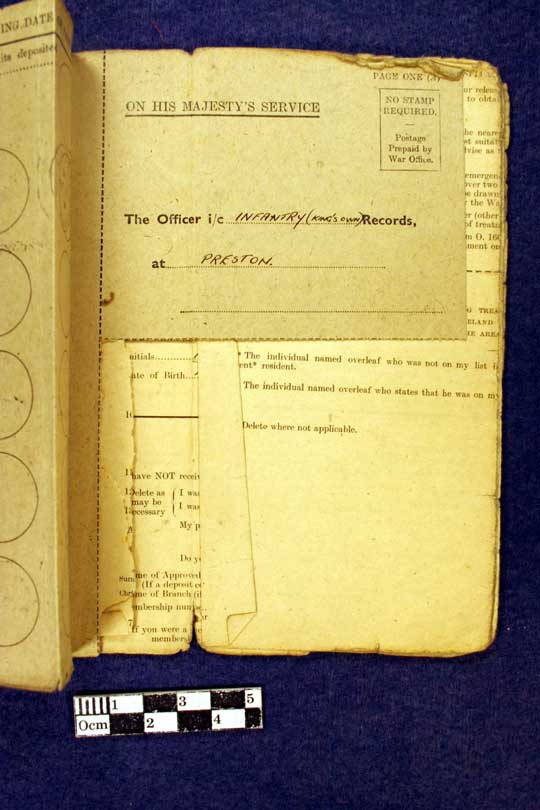 ING DATE
its deposited
PAGE ONE (3)
ON HIS MAJESTY'S SERVICE
NO STAMP
REQUIRED.
—
Postage
Prepaid by
War Office.
The Officer i/c INFANTRY (KING'S OWN) Records,
at PRESTON.
ur release
to obtai
he neare
st suitab
dvise as t
emergen
over two
be drawn
the Wa
er (other
of treatm
m O. 166
ment on
TREA
ELAND
AREA
nitials
ate of Birth
* The individual named overleaf who was not on my list
ent* resident.
The individual named overleaf who states that he was on my
Delete where not applicable.
have NOT receiv
Delete as
may be
necessary
I was
I was
My p
Do yo
me of Approved
(If a deposit co
me of Branch (if
embership number
If you were a
member
0cm 1 2 3 4 5